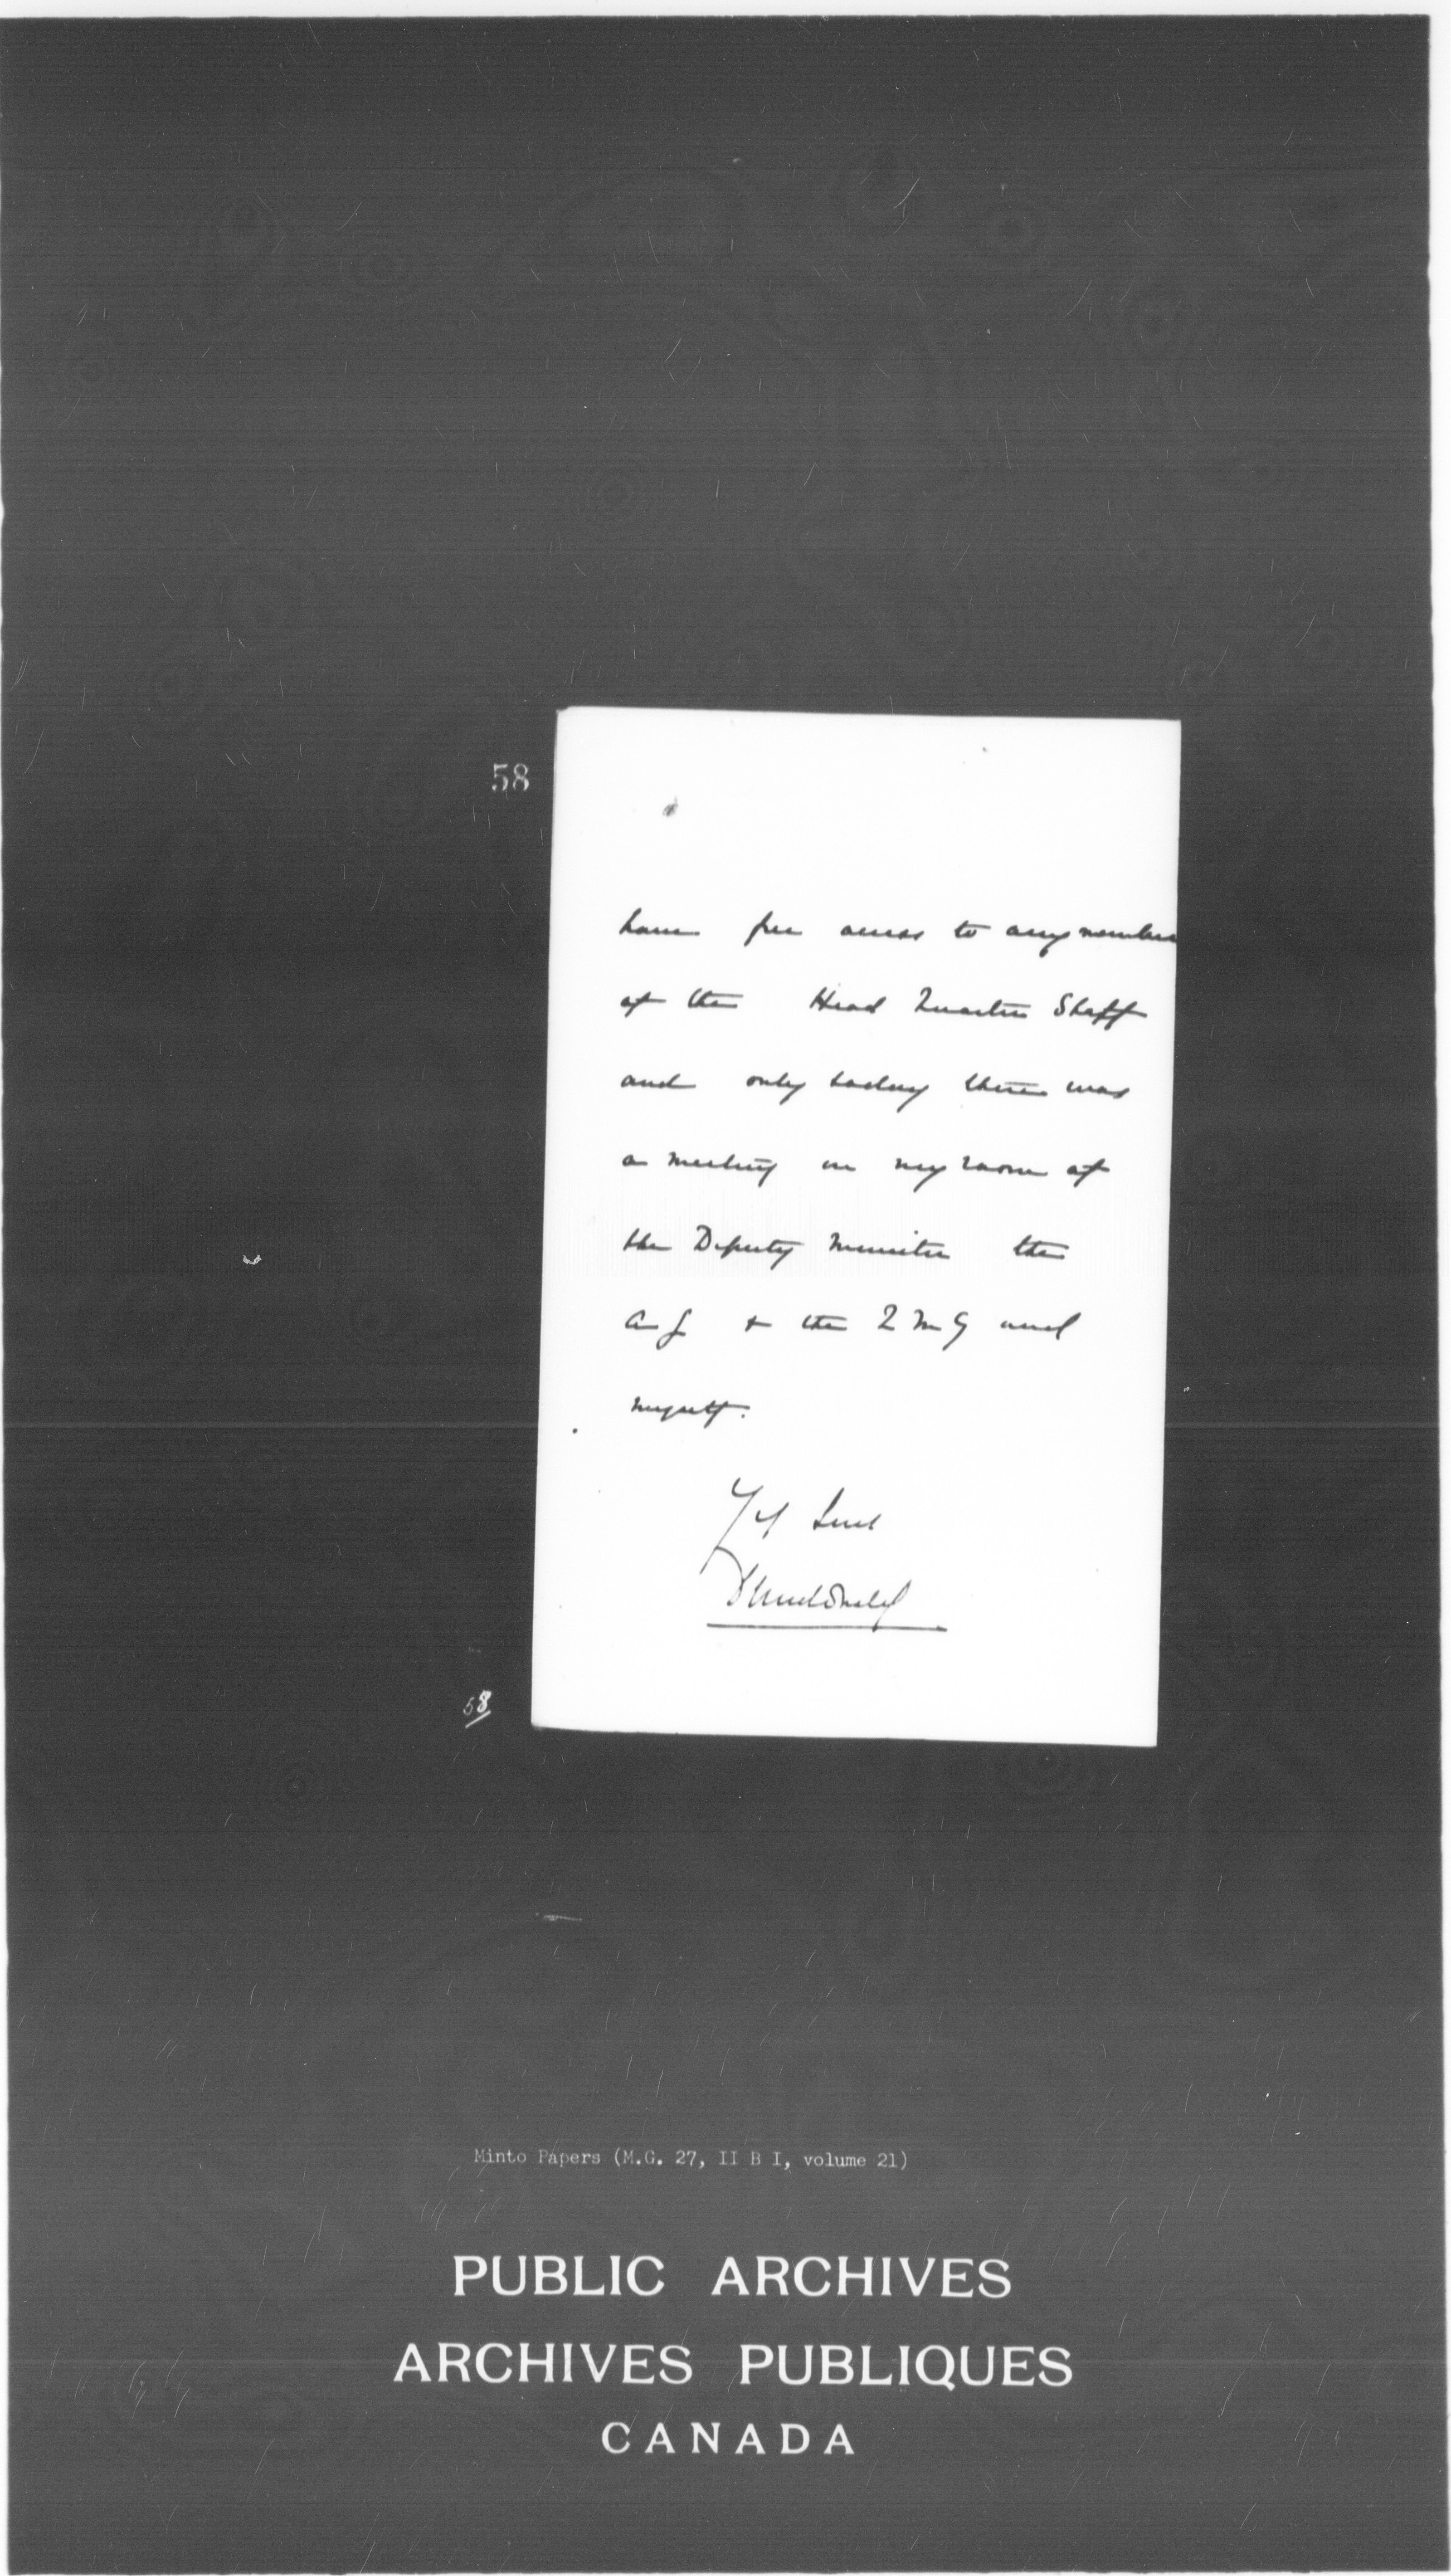 58
have free access to any member
of the Head Quarter Staff
and only today there was
a meeting in my room of
the Deputy Minister the
A G & the Q M G and
myself.
Yrs Sincl
Dundonald
58
Minto Papers (M.G. 27, II B I, volume 21)
PUBLIC ARCHIVES
ARCHIVES PUBLIQUES
CANADA